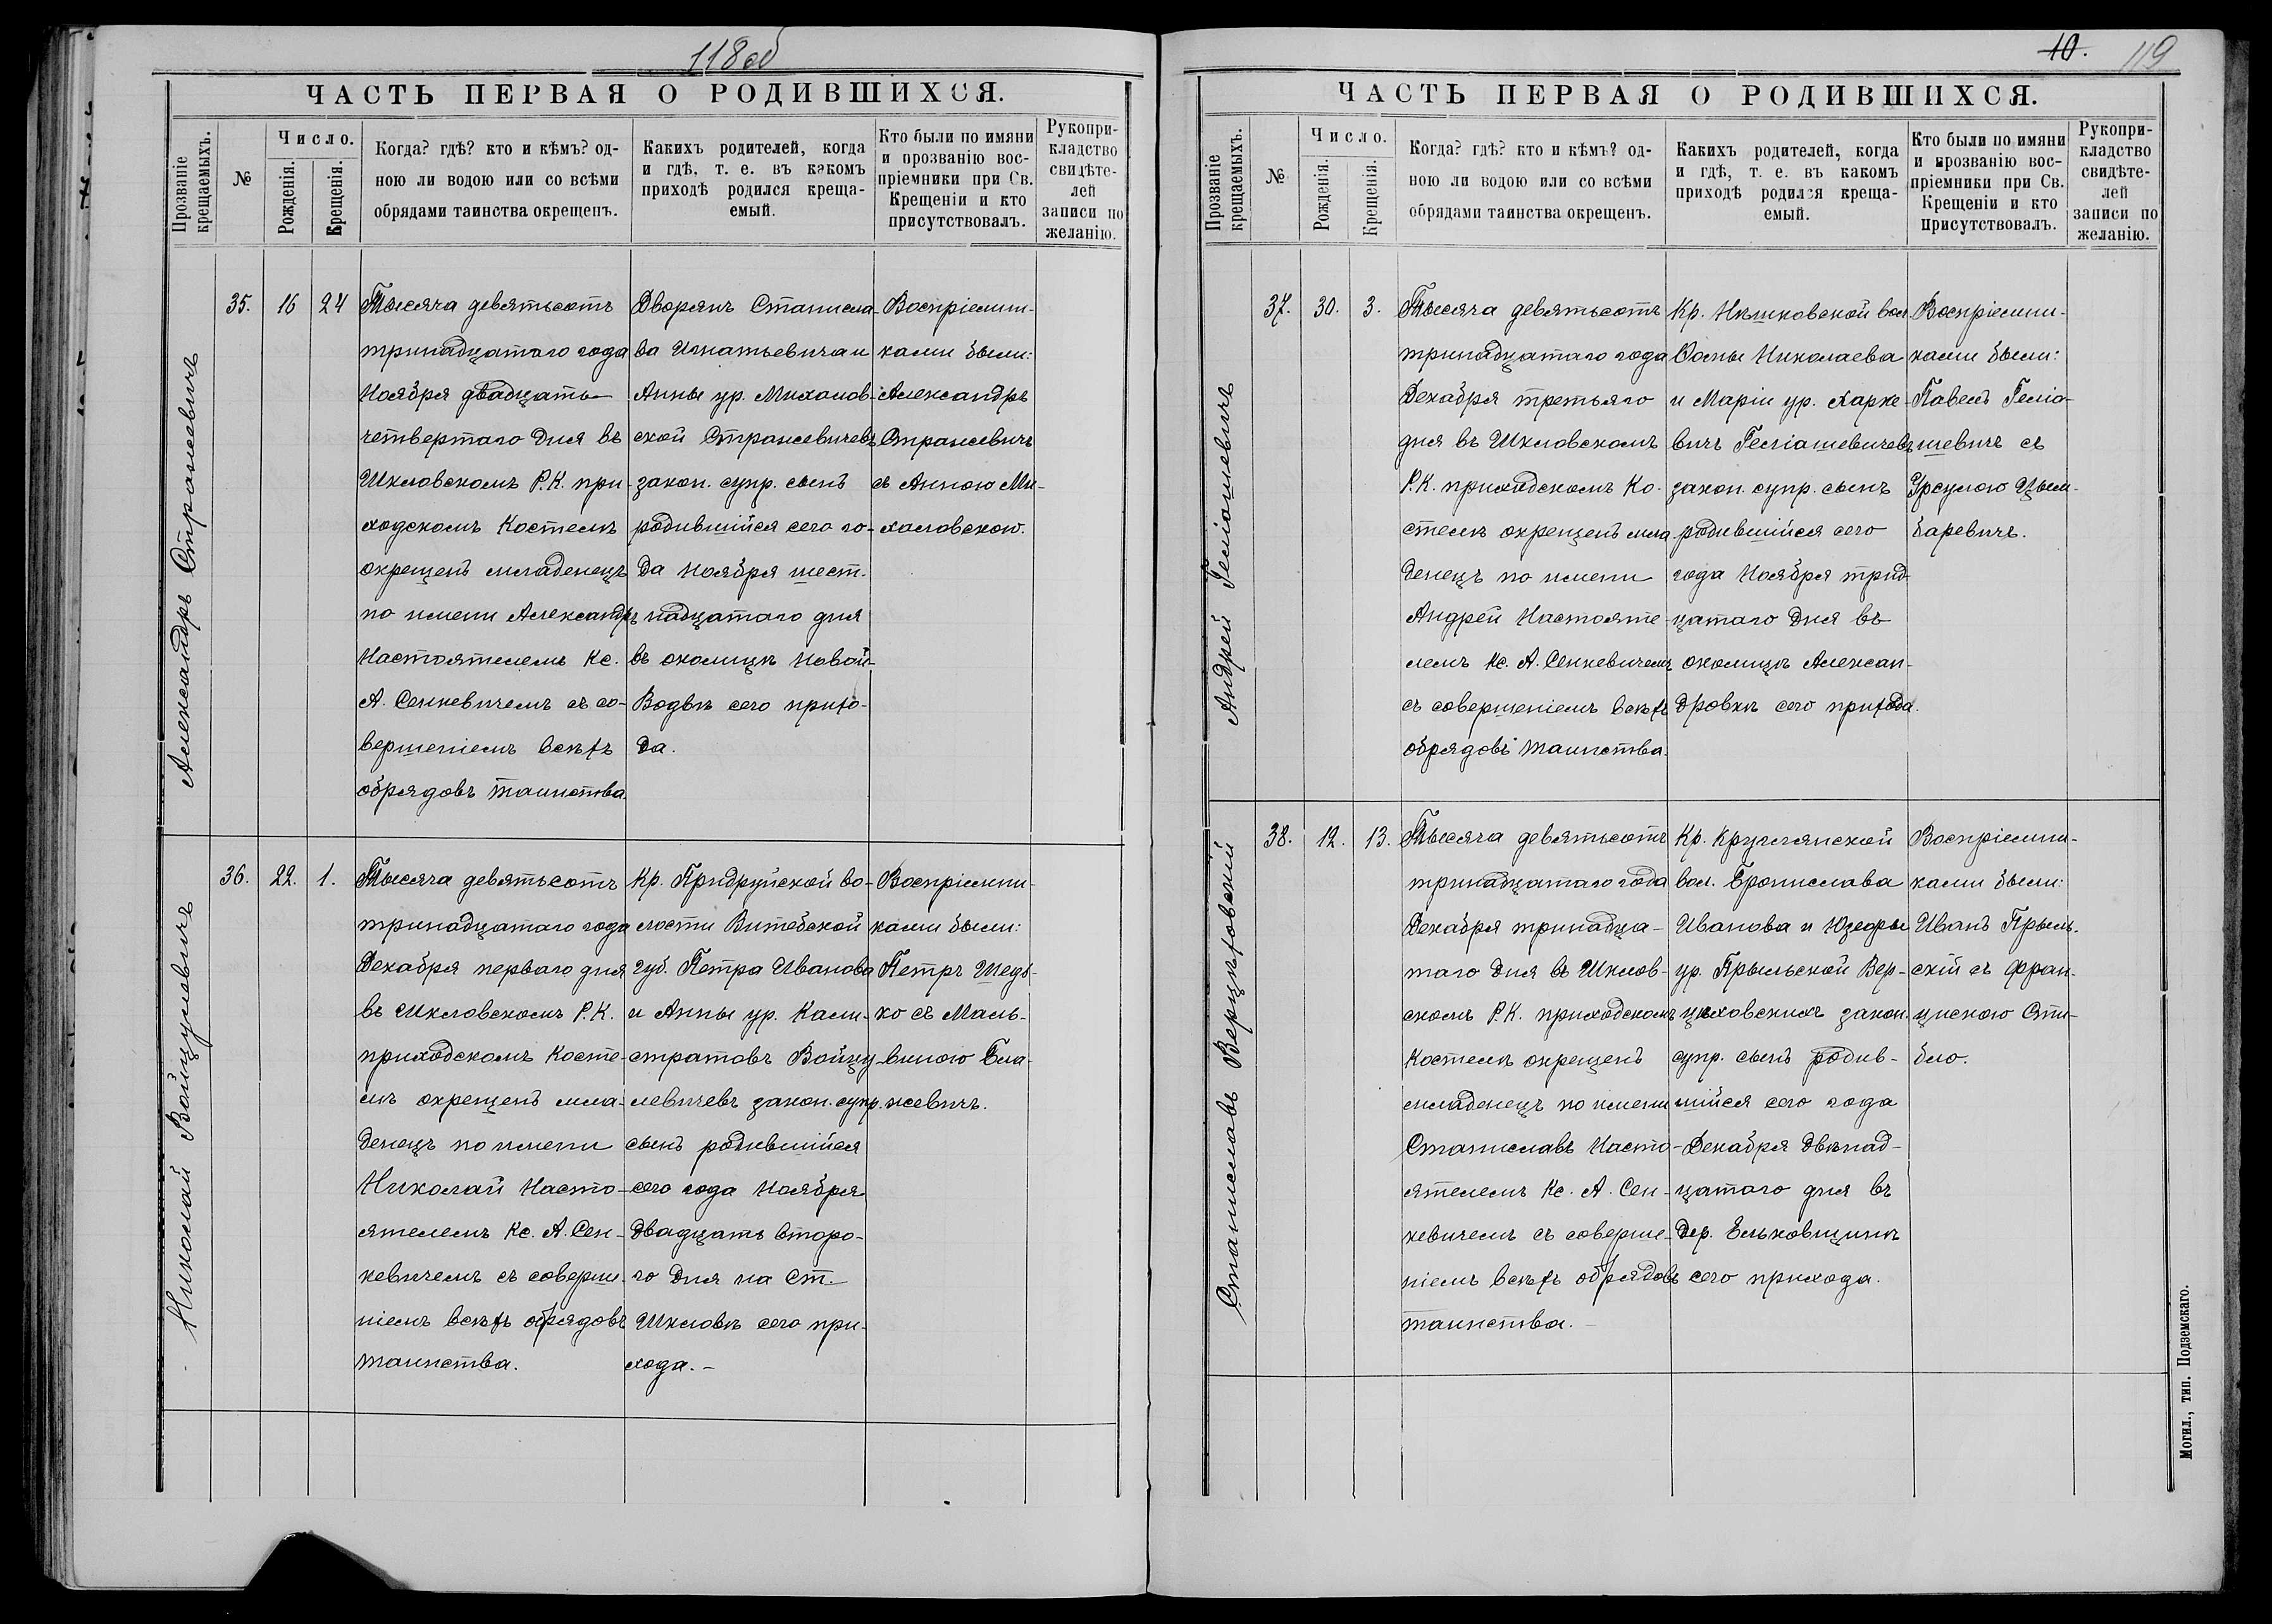 118об
ЧАСТЬ ПЕРВАЯ О РОДИВШИХСЯ.
Прозваніе
крещаемыхъ.
№
Число.
Рожденія.
Крещенія.
Когда? гдѣ? кто и кѣмъ? од-
ною ли водою или со всѣми
обрядами таинства окрещенъ.
Какихъ родителей, когда
и гдѣ, т. е. въ какомъ
приходѣ родился креща-
емый.
Кто были по имяни
и прозванію вос-
пріемники при Св.
Крещеніи и кто
присутствовалъ.
Рукопри-
кладство
свидѣте-
лей
записи по
желанію.
Александръ Странсевичъ
35.
16
24
Тысяча девятьсотъ
тринадцатаго года
Ноября двадцать
четвертаго дня въ
Шкловскомъ Р.К. при-
ходскомъ Костелѣ
окрещенъ младенецъ
по имени Александръ
Настоятелемъ Кс.
А. Сенкевичемъ съ со-
вершеніемъ всѣхъ
обрядовъ таинства.
Дворянъ Станисла-
ва Игнатьевича и
Анны ур. Михалов-
ской Странсевичевъ
закон. супр. сынъ
родившійся сего го-
да Ноября шест-
надцатаго дня
въ околицѣ Новой-
Водвѣ сего прихо-
да.
Воспріемни-
ками были:
Александръ
Странсевичъ
съ Анною Ми-
халовскою.
Николай Войцулевичъ
36.
22.
1.
Тысяча девятьсотъ
тринадцатаго года
Декабря перваго дня
въ Шкловскомъ Р.К.
приходскомъ Косте-
лѣ окрещенъ мла-
денецъ по имени
Николай Насто-
ятелемъ Кс. А. Сен-
кевичемъ съ соверше-
ніемъ всѣхъ обрядовъ
таинства.
Кр. Придруйской во-
лости Витебской
губ. Петра Иванова
и Анны ур. Кали-
стратовъ Войцу-
левичевъ закон. супр.
сынъ родившійся
сего года Ноября
двадцать второ-
го дня на ст.
Шкловъ сего при-
хода. –
Воспріемни-
ками были:
Петръ Шедь-
ко съ Маль-
виною Бла-
жевичъ.
10. 119
ЧАСТЬ ПЕРВАЯ О РОДИВШИХСЯ.
Прозваніе
крещаемыхъ.
№
Число.
Рожденія.
Крещенія.
Когда? гдѣ? кто и кѣмъ? од-
ною ли водою или со всѣми
обрядами таинства окрещенъ.
Какихъ родителей, когда
и гдѣ, т. е. въ какомъ
приходѣ родился креща-
емый.
Кто были по имяни
и прозванію вос-
пріемники при Св.
Крещеніи и кто
присутствовалъ.
Рукопри-
кладство
свидѣте-
лей
записи по
желанію.
Андрей Геліашевичъ
37.
30.
3.
Тысяча девятьсотъ
тринадцатаго года
Декабря третьяго
дня въ Шкловскомъ
Р.К. приходскомъ Ко-
стелѣ окрещенъ мла-
денецъ по имени
Андрей Настояте-
лемъ Кс. А. Сенкевичемъ
съ совершеніемъ всѣхъ
обрядовъ таинства.
Кр. вол.
Ѳомы Николаева
и Маріи ур. Харке-
вичъ Геліашевичевъ
закон. супр. сынъ
родившійся сего
года Ноября трид-
цатаго дня въ
околицѣ Александ-
ровкѣ сего прихода.
Воспріемни-
ками были:
Павелъ Геліа-
шевичъ съ
Урсулою Цым-
баревичъ.
Станиславъ Верцѣховскій
38.
12.
13.
Тысяча девятьсотъ
тринадцатаго года
Декабря тринадца-
таго дня въ Шклов-
скомъ Р.К. приходскомъ
Костелѣ окрещенъ
младенецъ по имени
Станиславъ Насто-
ятелемъ Кс. А. Сен-
кевичемъ съ соверше-
ніемъ всѣхъ обрядовъ
таинства. –
Кр. Круглянской
вол. Бронислава
Иванова и Юзефы
ур. Прыльской Вер-
цѣховскихъ закон.
супр. сынъ родив-
шійся сего года
Декабря двѣнад-
цатаго дня въ
дер. Ельковщинѣ
сего прихода.
Воспріемни-
ками были:
Иванъ Прыль-
скій съ Фран-
цискою Сти-
бло.
Могил., тип. Подземскаго.